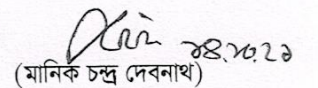 ২৪.১০.২১
(মানিক চন্দ্র দেবনাথ)